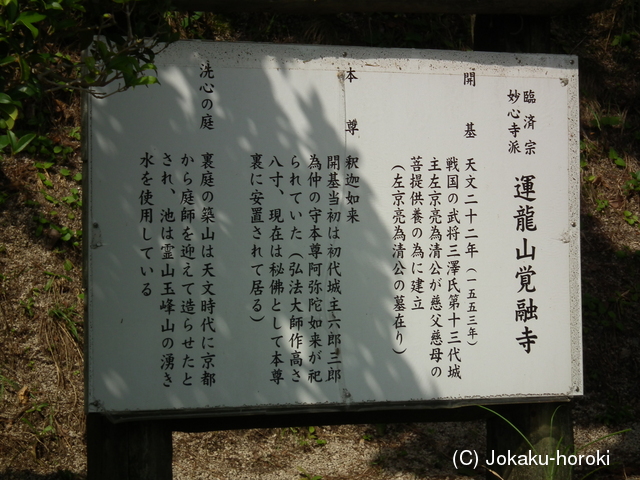 臨済宗
妙心寺派
運龍山覚融寺
開基 天文二十二年(一五五三年)
戦国の武将三澤氏第十三代城
主左京亮為清公が慈父慈母の
菩提供養の為に建立
(左京亮為清公の墓在り)
本尊 釈迦如来
開基当初は初代城主六郎三郎
為仲の守本尊阿弥陀如来が祀
られていた(弘法大師作高さ
八寸、現在は秘佛として本尊
裏に安置されて居る)
洗心の庭
裏庭の築山は天文時代に京都
から庭師を迎えて造らせたと
され、池は霊山玉峰山の湧き
水を使用している
(C) Jokaku-horoki